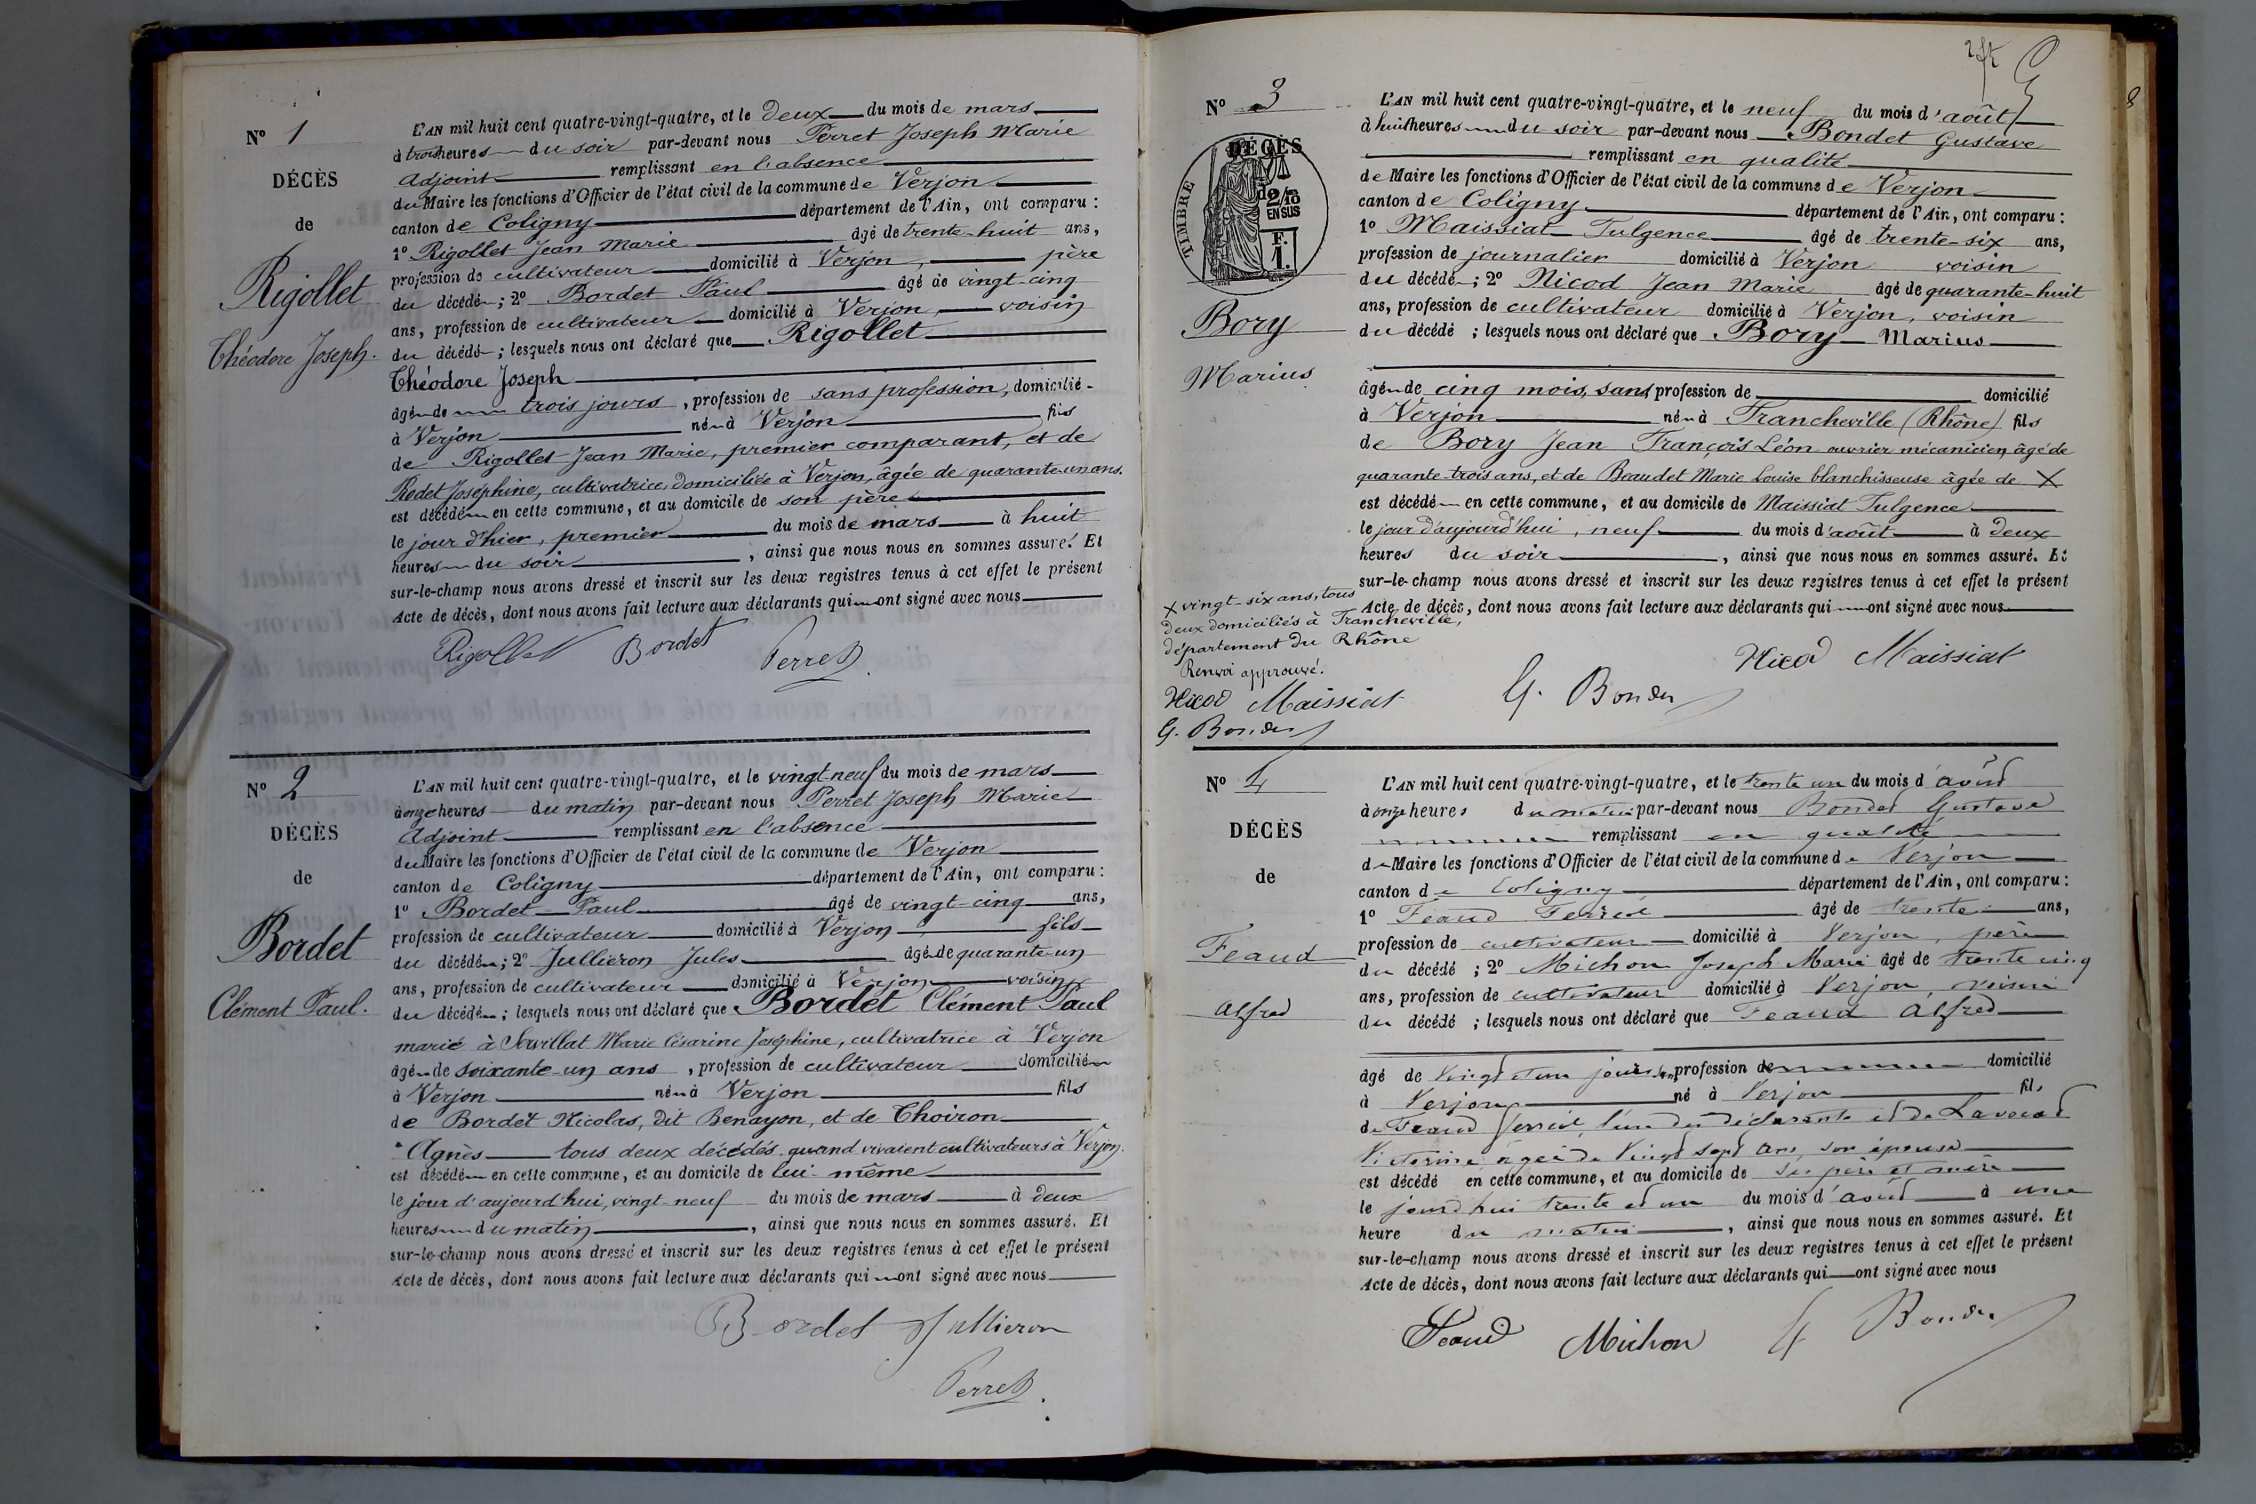 N° 1
DÉCÈS
de
Rigollet
Théodore Joseph.
L'AN mil huit cent quatre-vingt-quatre, et le Deux du mois de mars
à trois heures du soir par-devant nous Perret Joseph Marie
Adjoint remplissant en l'absence
du Maire les fonctions d'Officier de l'état civil de la commune de Verjon
canton de Coligny département de l'Ain, ont comparu :
1° Rigollet Jean Marie âgé de trente-huit ans,
profession de cultivateur domicilié à Verjon, père
du décédé ; 2° Bordet Paul âgé de vingt-cinq
ans, profession de cultivateur domicilié à Verjon voisin
du décédé ; lesquels nous ont déclaré que Rigollet
Théodore Joseph
âgé de trois jours, profession de sans profession, domicilié
à Verjon né à Verjon fils
de Rigollet Jean Marie, premier comparant, et de
Redet Joséphine, cultivatrice, domiciliée à Verjon, âgée de quarante-un ans.
est décédé en cette commune, et au domicile de son père
le jour d'hier, premier du mois de mars à huit
heures du soir, ainsi que nous nous en sommes assuré. Et
sur-le-champ nous avons dressé et inscrit sur les deux registres tenus à cet effet le présent
Acte de décès, dont nous avons fait lecture aux déclarants qui ont signé avec nous
Rigollet Bordet Perret
N° 2
DÉCÈS
de
Bordet
Clément Paul.
L'AN mil huit cent quatre-vingt-quatre, et le vingt-neuf du mois de mars
à onze heures du matin par-devant nous Perret Joseph Marie
Adjoint remplissant en l'absence
du Maire les fonctions d'Officier de l'état civil de la commune de Verjon
canton de Coligny département de l'Ain, ont comparu :
1° Bordet Paul âgé de vingt-cinq ans,
profession de cultivateur domicilié à Verjon fils
du décédé ; 2° Jullieron Jules âgé de quarante-un
ans, profession de cultivateur domicilié à Verjon voisin
du décédé ; lesquels nous ont déclaré que Bordet Clément Paul
marié à Marie Césarine Joséphine, cultivatrice à Verjon
âgé de soixante-un ans, profession de cultivateur domicilié
à Verjon né à Verjon fils
de Bordet Nicolas, dit Benayon, et de Thoiron
Agnès tous deux décédés quand vivaient cultivateurs à Verjon.
est décédé en cette commune, et au domicile de lui-même
le jour d'aujourd'hui, vingt-neuf du mois de mars à deux
heures du matin, ainsi que nous nous en sommes assuré. Et
sur-le-champ nous avons dressé et inscrit sur les deux registres tenus à cet effet le présent
Acte de décès, dont nous avons fait lecture aux déclarants qui ont signé avec nous
Bordet Jullieron
Perret
N° 3
DÉCÈS
TIMBRE
2/10
EN SUS
F.
1.
Bory
Marius
L'AN mil huit cent quatre-vingt-quatre, et le neuf du mois d'août
à huit heures du soir par-devant nous Bondet Gustave
remplissant en qualité
de Maire les fonctions d'Officier de l'état civil de la commune de Verjon
canton de Coligny département de l'Ain, ont comparu :
1° Maissiat Fulgence âgé de trente-six ans,
profession de journalier domicilié à Verjon voisin
du décédé ; 2° Nicod Jean Marie âgé de quarante-huit
ans, profession de cultivateur domicilié à Verjon, voisin
du décédé ; lesquels nous ont déclaré que Bory Marius
âgé de cinq mois, sans profession de domicilié
à Verjon né à Francheville (Rhône) fils
de Bory Jean François Léon ouvrier mécanicien âgé de
quarante-trois ans, et de Beaudet Marie Louise blanchisseuse âgée de X
est décédé en cette commune, et au domicile de Maissiat Fulgence
le jour d'aujourd'hui, neuf du mois d'août à deux
heures du soir, ainsi que nous nous en sommes assuré. Et
sur-le-champ nous avons dressé et inscrit sur les deux registres tenus à cet effet le présent
Acte de décès, dont nous avons fait lecture aux déclarants qui ont signé avec nous
X vingt-six ans, tous
deux domiciliés à Francheville,
département du Rhône
Renvoi approuvé.
Nicod Maissiat
G. Bondet
Nicod Maissiat
G. Bondet
N° 4
DÉCÈS
de
Feaud
Alfred
L'AN mil huit cent quatre-vingt-quatre, et le trente un du mois d'août
à onze heures du matin par-devant nous Bondet Gustave
remplissant en qualité
de Maire les fonctions d'Officier de l'état civil de la commune de Verjon
canton de Coligny département de l'Ain, ont comparu :
1° Feaud Ferréol âgé de trente ans,
profession de cultivateur domicilié à Verjon, père
du décédé ; 2° Michon Joseph Marie âgé de trente cinq
ans, profession de cultivateur domicilié à Verjon, voisin
du décédé ; lesquels nous ont déclaré que Feaud Alfred
âgé de vingt et un jours, profession de domicilié
à Verjon né à Verjon fils
de Feaud Ferréol, l'un des déclarants et de Lavocat
Victorine âgée de vingt sept ans, son épouse
est décédé en cette commune, et au domicile de ses père et mère
le jourd'hui trente et un du mois d'août à une
heure du matin, ainsi que nous nous en sommes assuré. Et
sur-le-champ nous avons dressé et inscrit sur les deux registres tenus à cet effet le présent
Acte de décès, dont nous avons fait lecture aux déclarants qui ont signé avec nous
Feaud Michon G Bondet